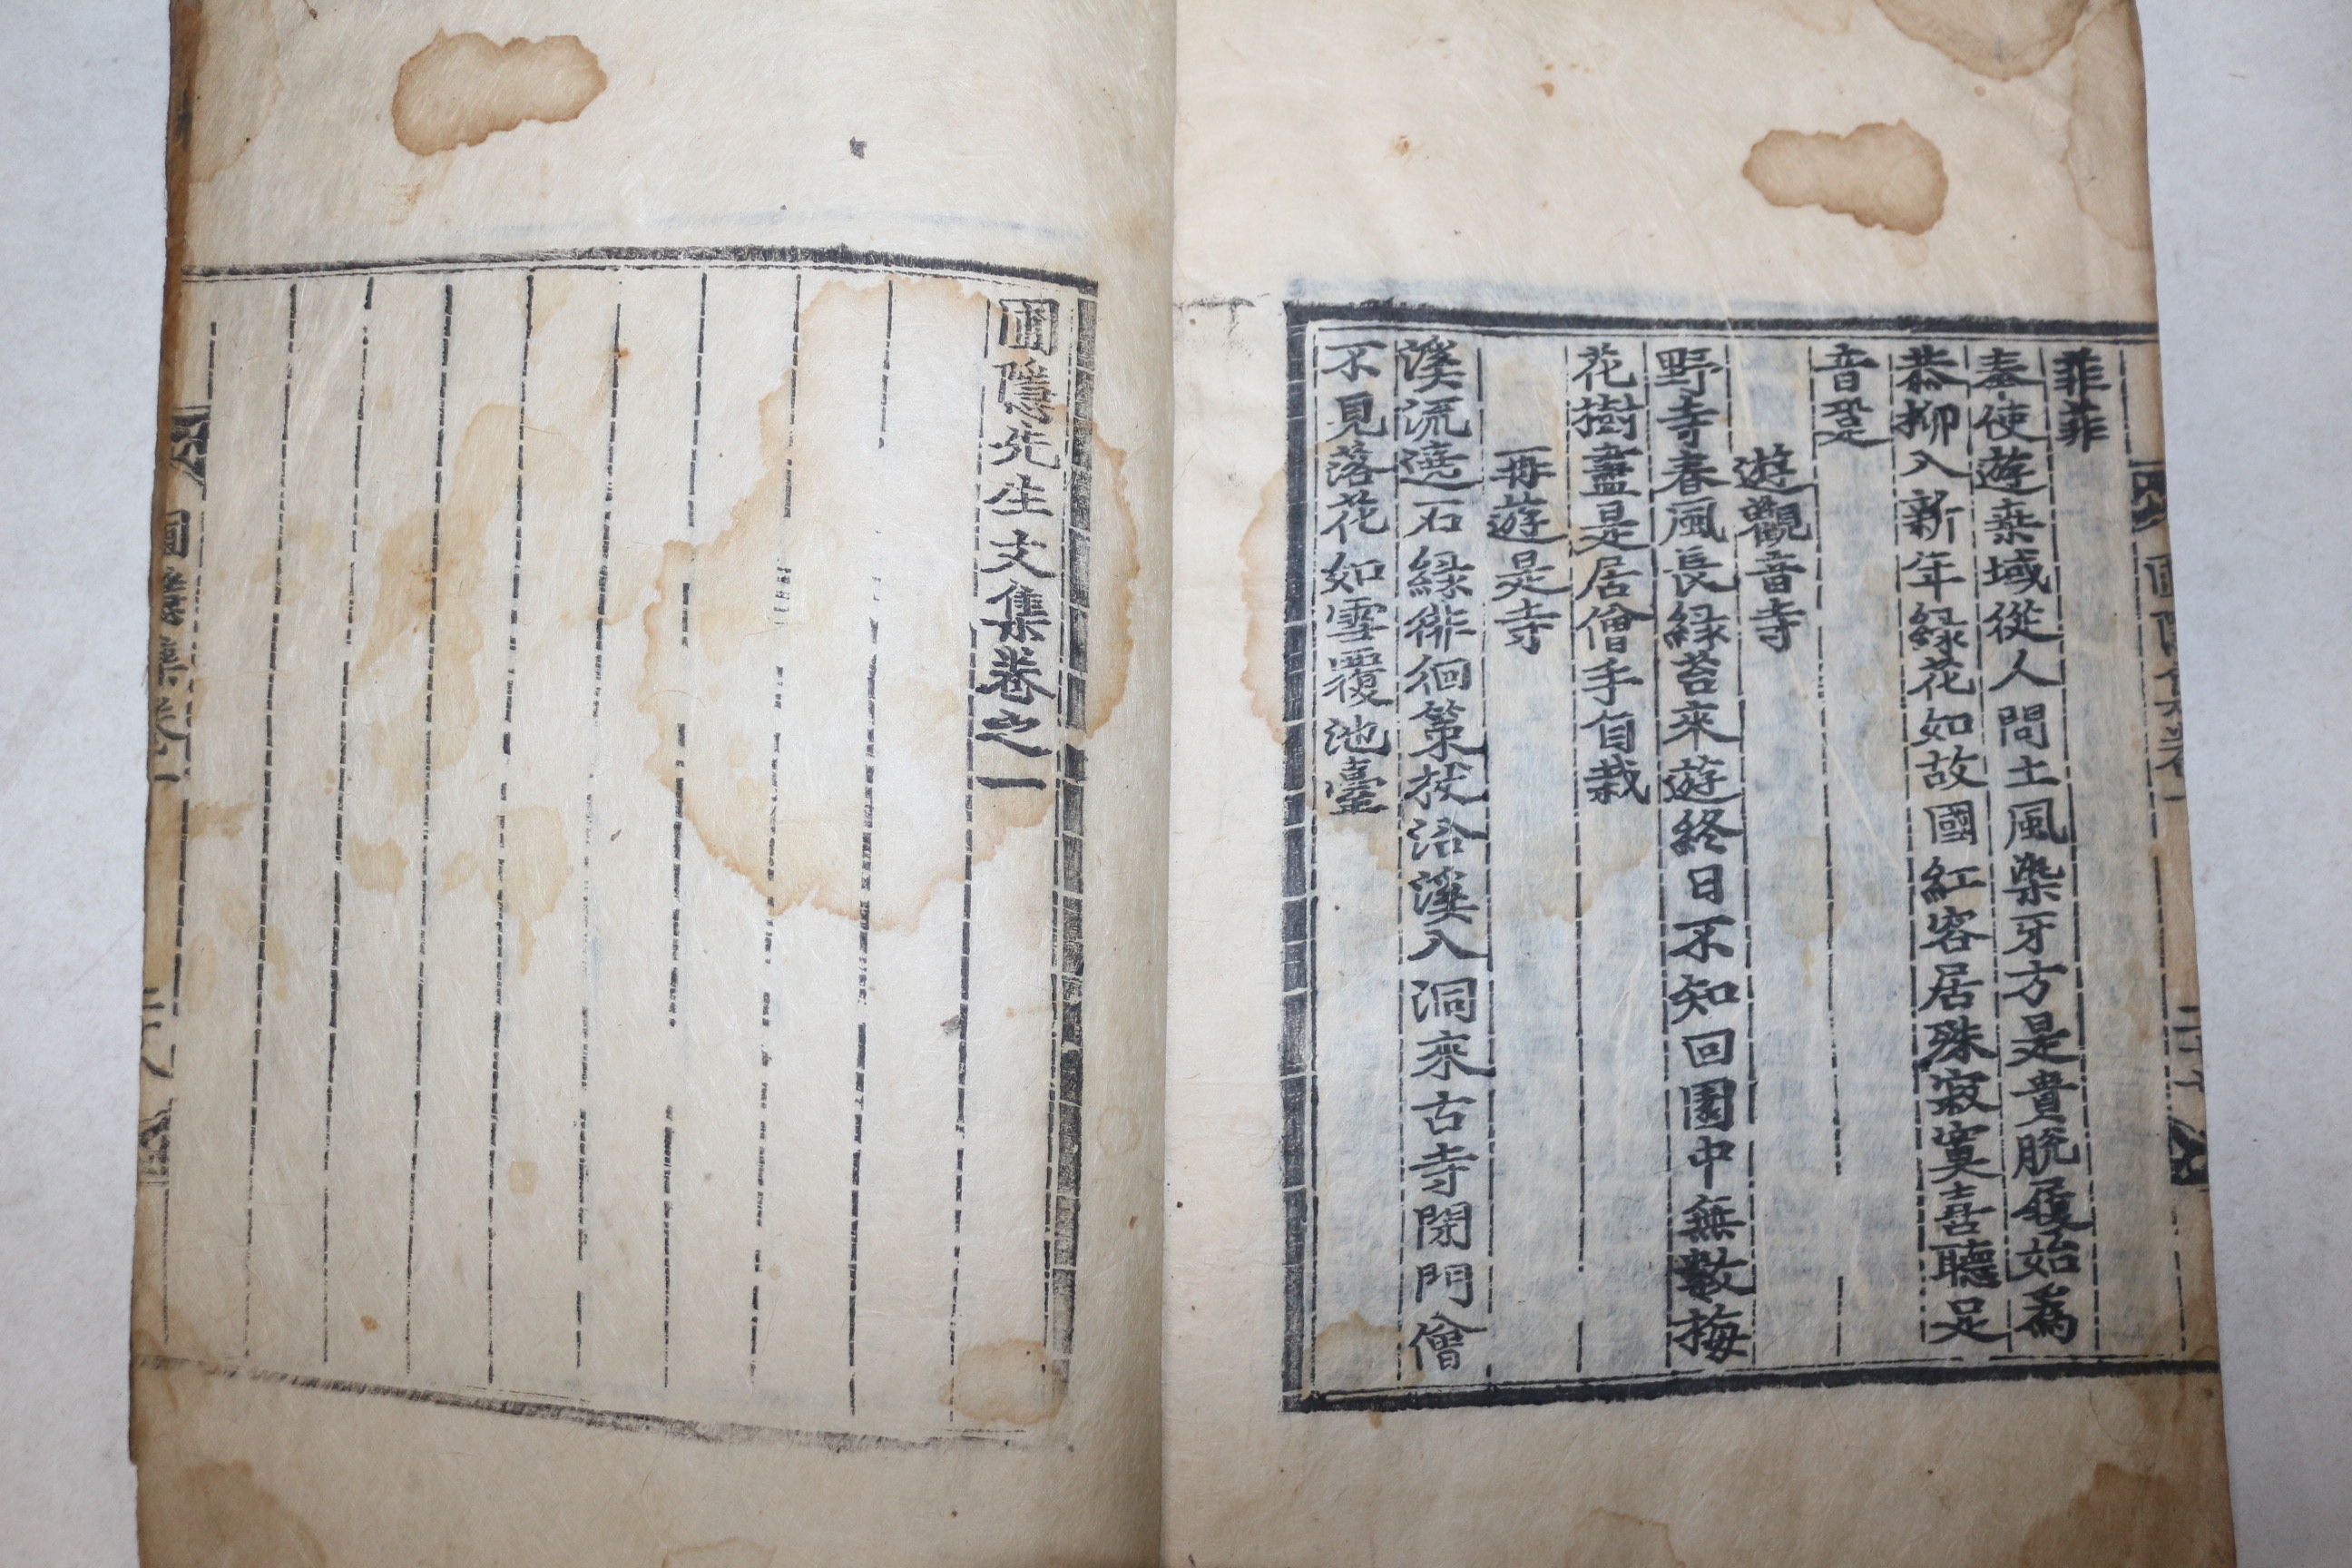 圃隱集卷一
菲菲
奉使遊桒域從人問土風染牙方是貴脫履始爲
恭柳入新年綠花如故國紅客居殊寂寞喜聽足
音跫
遊觀音寺
野寺春風長綠苔來遊終日不知回園中無數梅
花樹盡是居僧手自栽
再遊是寺
溪流遶石綠徘徊策杖沿溪入洞來古寺閉門僧
不見落花如雪覆池臺
圃隱先生文集卷之一
圃隱集卷一